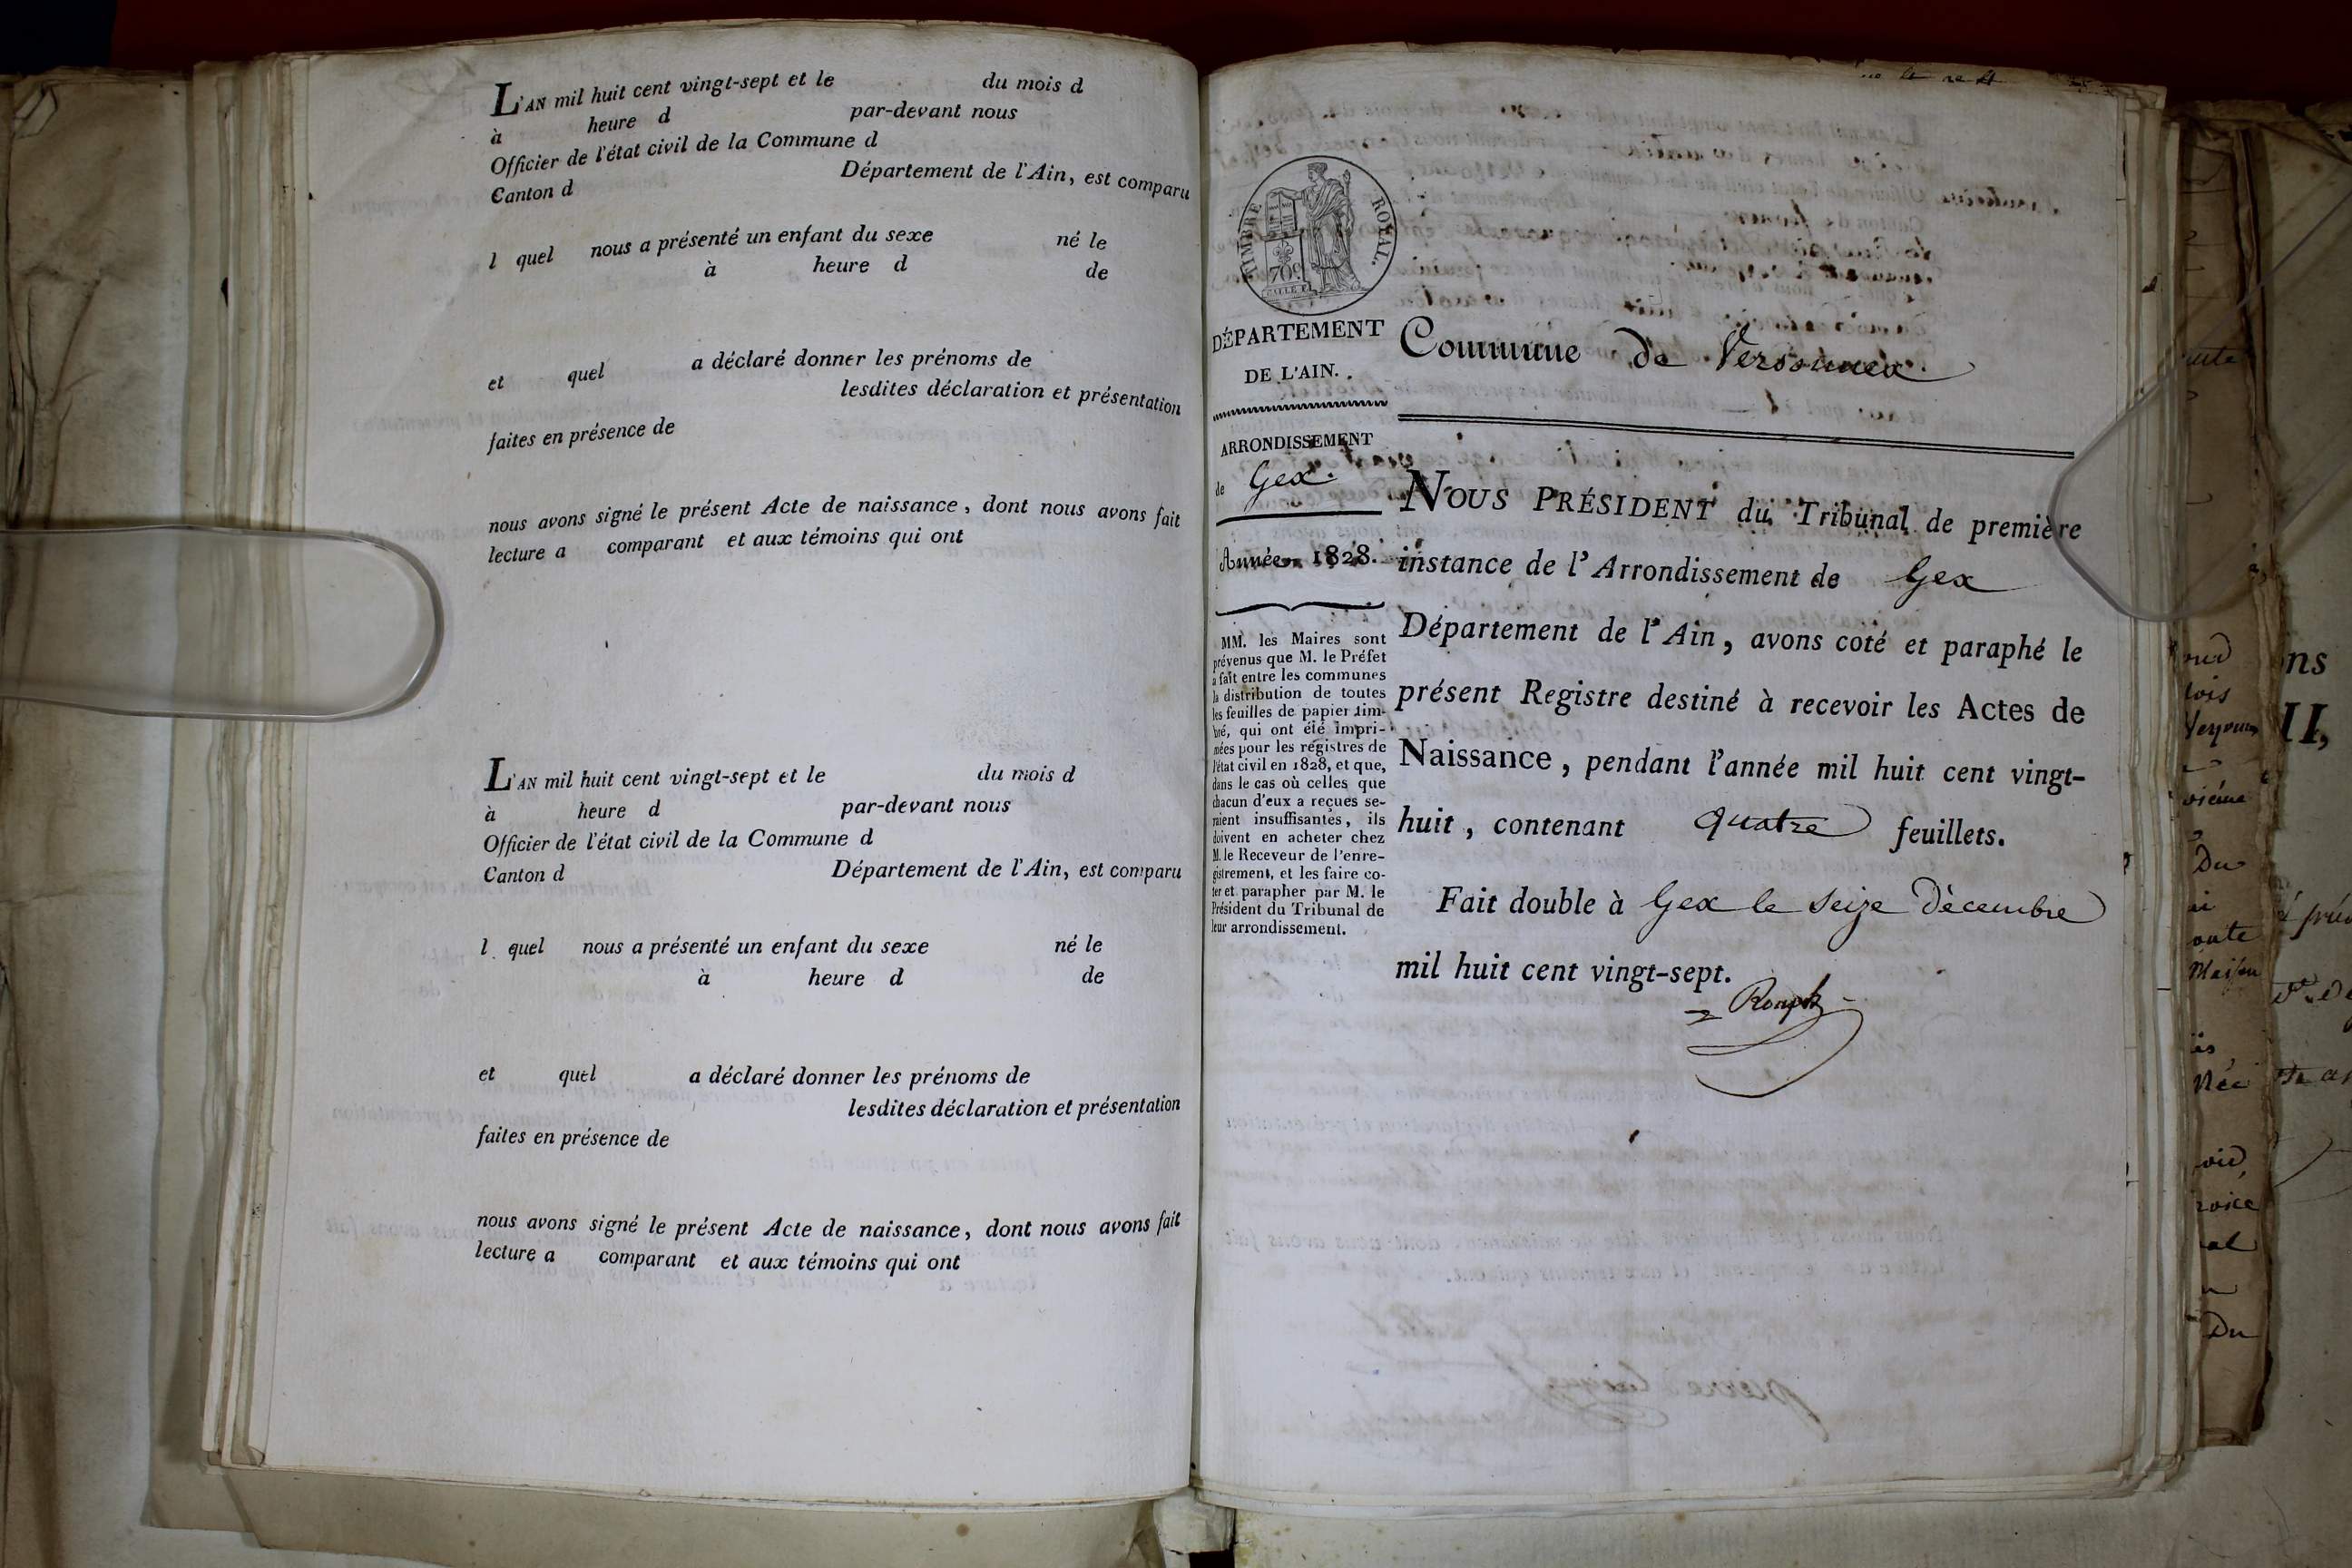 L'AN mil huit cent vingt-sept et le du mois d
à heure d par-devant nous
Officier de l'état civil de la Commune d
Canton d Département de l'Ain, est comparu
l quel nous a présenté un enfant du sexe né le
à heure d de
et quel a déclaré donner les prénoms de
lesdites déclaration et présentation
faites en présence de
nous avons signé le présent Acte de naissance, dont nous avons fait
lecture a comparant et aux témoins qui ont
L'AN mil huit cent vingt-sept et le du mois d
à heure d par-devant nous
Officier de l'état civil de la Commune d
Canton d Département de l'Ain, est comparu
l quel nous a présenté un enfant du sexe né le
à heure d de
et quel a déclaré donner les prénoms de
lesdites déclaration et présentation
faites en présence de
nous avons signé le présent Acte de naissance, dont nous avons fait
lecture a comparant et aux témoins qui ont
TIMBRE ROYAL.
70c
DÉPARTEMENT
DE L'AIN.
ARRONDISSEMENT
de Gex.
Année 1828.
MM. les Maires sont
prévenus que M. le Préfet
a fait entre les communes
la distribution de toutes
les feuilles de papier tim-
bré, qui ont été impri-
mées pour les régistres de
l'état civil en 1828, et que,
dans le cas où celles que
chacun d'eux a reçues se-
raient insuffisantes, ils
doivent en acheter chez
M. le Receveur de l'enre-
gistrement, et les faire co-
ter et parapher par M. le
Président du Tribunal de
leur arrondissement.
Commune de Versonnex
NOUS PRÉSIDENT du Tribunal de première
instance de l'Arrondissement de Gex
Département de l'Ain, avons coté et paraphé le
présent Registre destiné à recevoir les Actes de
Naissance, pendant l'année mil huit cent vingt-
huit, contenant quatre feuillets.
Fait double à Gex le seize décembre
mil huit cent vingt-sept.